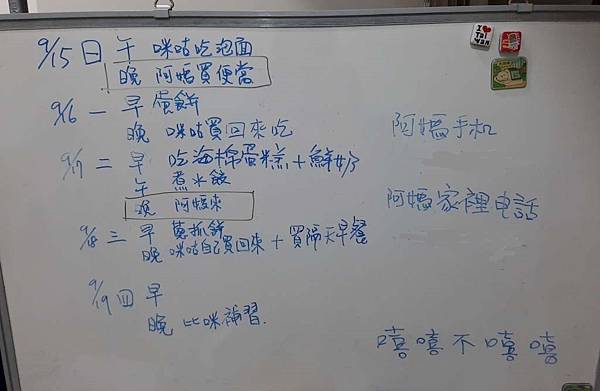 9/15 日 午 咪咕吃泡面
晚 阿媽買便當
9/16 一 早 蛋餅
晚 咪咕買回來吃
9/17 二 早 吃海棉蛋糕+鮮奶
午 煮水餃
晚 阿媽來
9/18 三 早 蔥抓餅
晚 咪咕自己買回來+買隔天早餐
9/19 四 早
晚 比咪補習.
阿媽手机
阿媽家裡电話
嘻嘻不嘻嘻
I ♥ TAI WAN